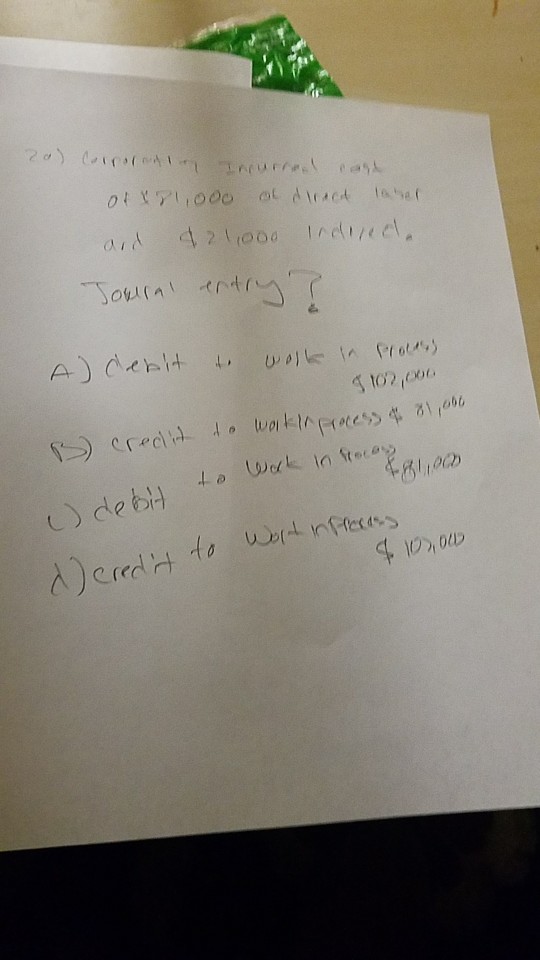 20) Corporation Incurred cost
of $81,000 of direct labor
and $21,000 Indirect.
Journal entry?
A) debit to work in Process
$102,000
B) credit to work In process $ 81,000
C) debit to Work in Process
$81,000
d) credit to Work in Process
$ 102,000